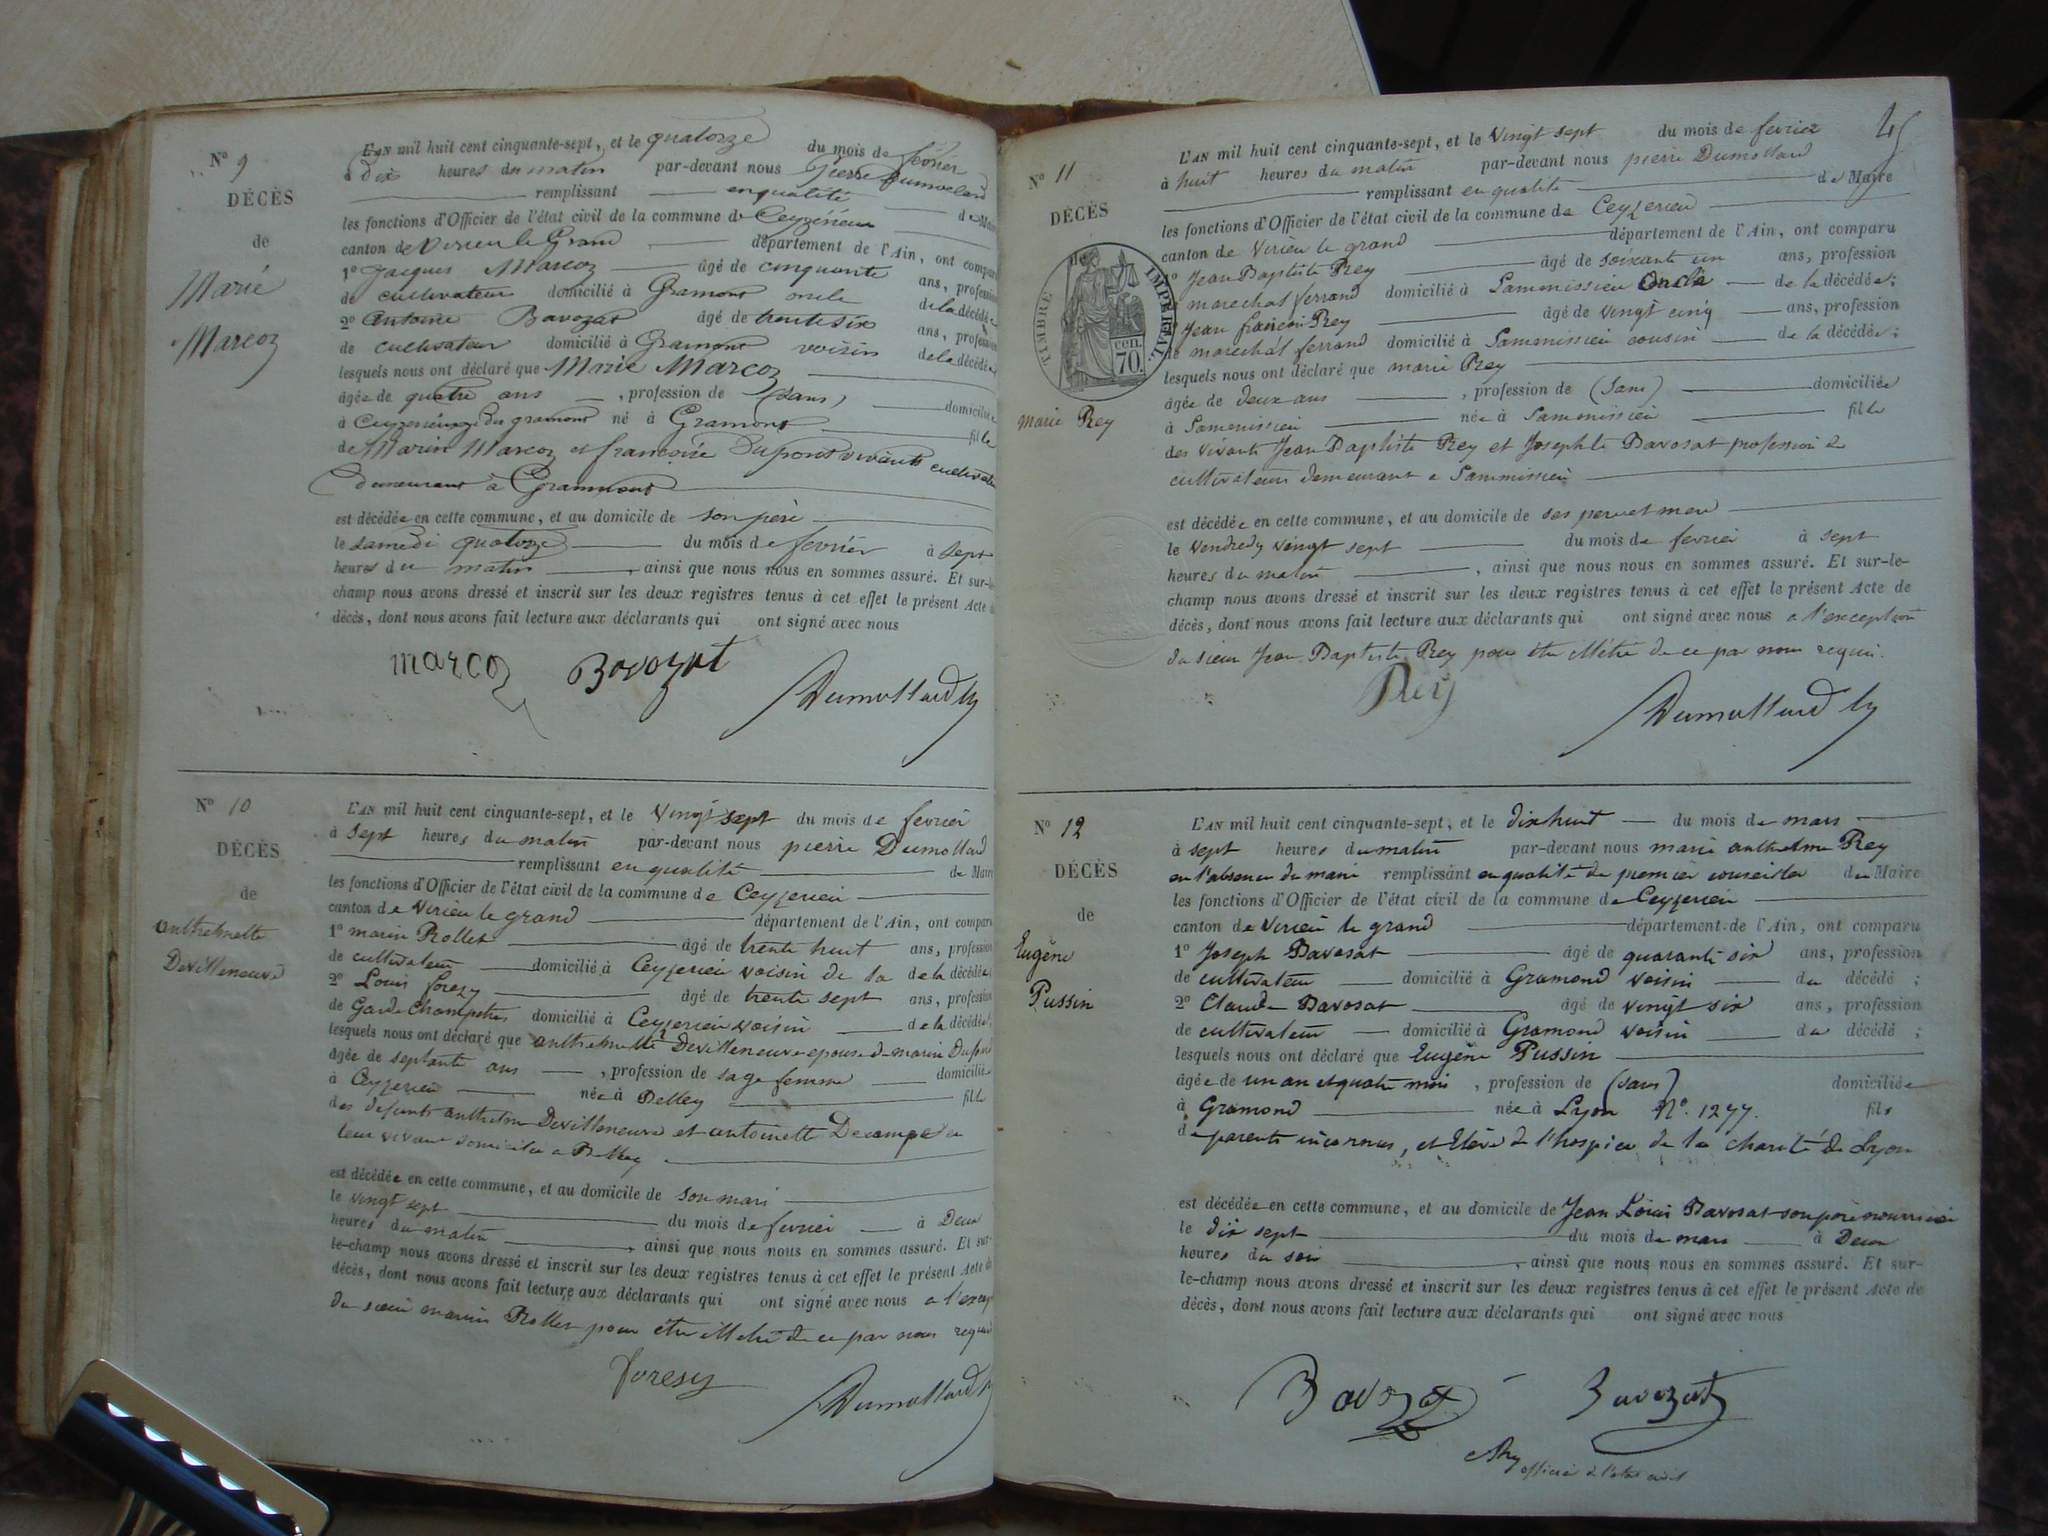 N° 9
DÉCÈS
de
Marie
Marcoz
L'AN mil huit cent cinquante-sept, et le quatorze du mois de février
à dix heures du matin par-devant nous Pierre Dumollard
remplissant en qualité de Maire
les fonctions d'Officier de l'état civil de la commune de Ceyzérieux
canton de Virieu le Grand département de l'Ain, ont comparu
1° Jacques Marcoz âgé de cinquante ans, profession
de cultivateur domicilié à Gramont oncle de la décédée
2° Antoine Bavozat âgé de trente six ans, profession
de cultivateur domicilié à Gramont voisin de la décédée
lesquels nous ont déclaré que Marie Marcoz
âgée de quatre ans, profession de (sans) domiciliée
à gramont né à Gramont fille
de Marin Marcoz et françoise Dupont vivants cultivat
demeurant à Grammont
est décédée en cette commune, et au domicile de son père
le samedi quatorze du mois de février à sept
heures du matin, ainsi que nous nous en sommes assuré. Et sur-le-
champ nous avons dressé et inscrit sur les deux registres tenus à cet effet le présent Acte de
décès, dont nous avons fait lecture aux déclarants qui ont signé avec nous
marcoz Bovozat
Dumollard
N° 10
DÉCÈS
de
anthelmette
Devilleneuve
L'AN mil huit cent cinquante-sept, et le vingt sept du mois de fevrier
à sept heures du matin par-devant nous pierre Dumollard
remplissant en qualité de Maire
les fonctions d'Officier de l'état civil de la commune de Ceyzerieu
canton de Virieu le grand département de l'Ain, ont comparu
1° marin Rollet âgé de trente huit ans, profession
de cultivateur domicilié à Ceyzerieu voisin de la de la décédée
2° Louis foresy âgé de trente sept ans, profession
de Garde Champetre domicilié à Ceyzerieu voisin de la décédée
lesquels nous ont déclaré que anthelmette Devilleneuve epouse de marin Dupond
âgée de septante ans, profession de sage femme domiciliée
à Ceyzerieu née à Belley fille
des defunts anthelme Devilleneuve et antoinette Decampe de
leur vivant domicilie a Belley
est décédée en cette commune, et au domicile de son mari
le vingt sept du mois de fevrier à Deux
heures du matin, ainsi que nous nous en sommes assuré. Et sur-
le-champ nous avons dressé et inscrit sur les deux registres tenus à cet effet le présent Acte de
décès, dont nous avons fait lecture aux déclarants qui ont signé avec nous a l'excep
du sieur marin Rollet pour être illétré de ce par nous requis
foresy
Dumollard
45
N° 11
DÉCÈS
de
TIMBRE IMPERIAL.
cen.
70.
marie Rey
L'AN mil huit cent cinquante-sept, et le vingt sept du mois de fevrier
à huit heures du matin par-devant nous pierre Dumollard
remplissant en qualité de Maire
les fonctions d'Officier de l'état civil de la commune de Ceyzerieu
canton de Virieu le grand département de l'Ain, ont comparu
1° Jean Baptiste Rey âgé de soixante un ans, profession
marechal ferrand domicilié à Sammissieu Oncle de la décédée;
Jean françois Rey âgé de vingt cinq ans, profession
de marechal ferrand domicilié à Sammissieu cousin de la décédée;
lesquels nous ont déclaré que marie Rey
âgée de deux ans, profession de (sans) domiciliée
à Sammissieu née à Sammissieu fille
des vivants Jean Baptiste Rey et Josephte Bavosat profession de
cultivateurs demeurant a Sammissieu
est décédée en cette commune, et au domicile de ses per et mere
le vendredy vingt sept du mois de fevrier à sept
heures du matin, ainsi que nous nous en sommes assuré. Et sur-le-
champ nous avons dressé et inscrit sur les deux registres tenus à cet effet le présent Acte de
décès, dont nous avons fait lecture aux déclarants qui ont signé avec nous a l'exception
du sieur Jean Baptiste Rey pour être illétré de ce par nous requis.
Rey
Dumollard
N° 12
DÉCÈS
de
Eugène
Pussin
L'AN mil huit cent cinquante-sept, et le dix huit du mois de mars
à sept heures du matin par-devant nous marie anthelme Rey
en l'absence du maire remplissant en qualité de premier conseiller du Maire
les fonctions d'Officier de l'état civil de la commune de Ceyzerieu
canton de Virieu le grand département de l'Ain, ont comparu
1° Joseph Bavosat âgé de quarante six ans, profession
de cultivateur domicilié à Gramond voisin du décédé;
2° Claude Bavosat âgé de vingt six ans, profession
de cultivateur domicilié à Gramond voisin du décédé;
lesquels nous ont déclaré que Eugène Pussin
âgée de un an et quatre mois, profession de (sans) domiciliée
à Gramond née à Lyon N°. 1277. fils
de parents inconnus, et Elève de l'hospice de la charité de Lyon
est décédée en cette commune, et au domicile de Jean Louis Bavosat son père nourricier
le dix sept du mois de mars à Deux
heures du soir, ainsi que nous nous en sommes assuré. Et sur-
le-champ nous avons dressé et inscrit sur les deux registres tenus à cet effet le présent Acte de
décès, dont nous avons fait lecture aux déclarants qui ont signé avec nous
Bavozat Bavozat
Rey officier de l'état civil